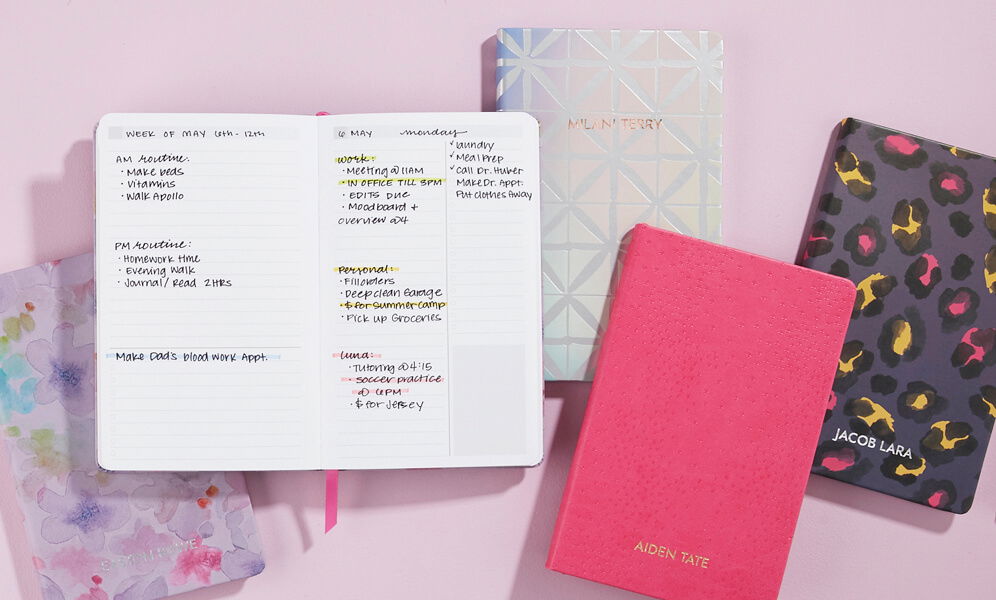 WEEK OF MAY 6th - 12th
AM routine:
• Make beds
• Vitamins
• Walk Apollo
PM routine:
• Homework time
• Evening Walk
• Journal/Read 2HRS
Make Dad's blood work Appt.
6 MAY monday
work:
• Meeting @ 11AM
• IN OFFICE TILL 3PM
• EDITS DUE
• Moodboard +
overview @4
personal:
• Fill orders
• Deep clean Garage
• $ for Summer Camp
• Pick up Groceries
luna:
• Tutoring @ 4:15
• soccer practice
@ 6PM
• $ for Jersey
✓ laundry
✓ Meal Prep
✓ Call Dr. Huber
Make Dr. Appt.
Put clothes Away
MILANI TERRY
JACOB LARA
AIDEN TATE